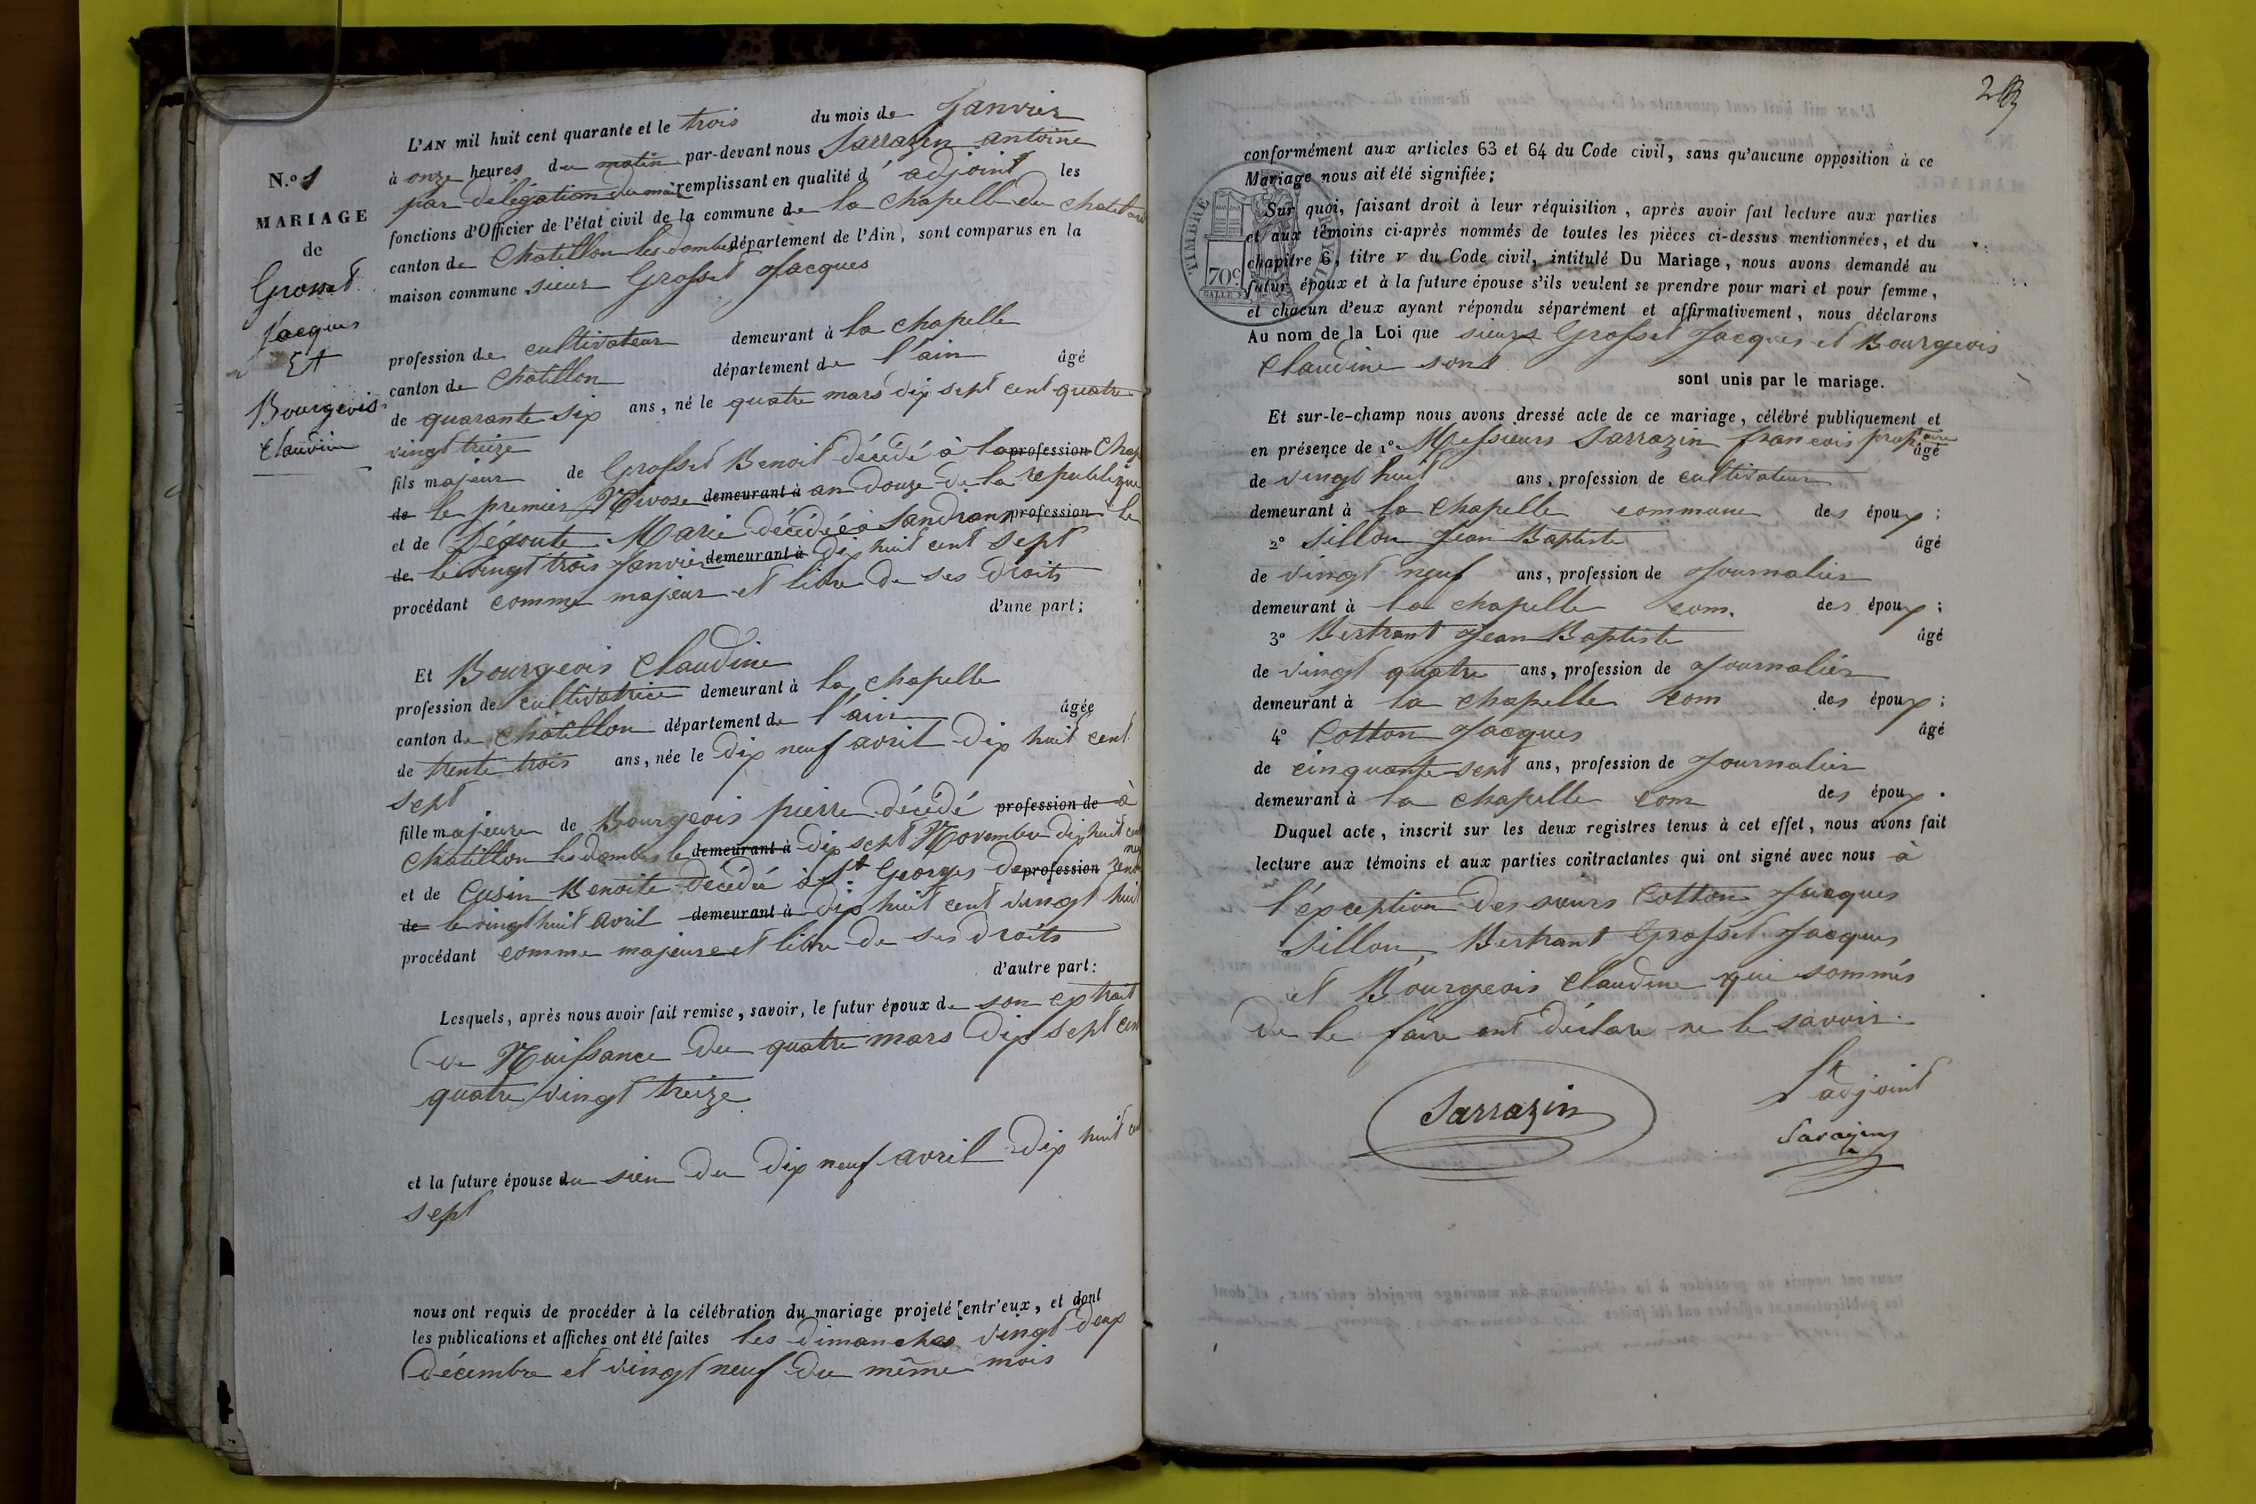 N.º 1
MARIAGE
de
Grosset
Jacques
Et
Bourgeois
Claudine
L'AN mil huit cent quarante et le trois du mois de Janvier
à onze heures du matin par-devant nous Sarrazin antoine
par délégation du maire remplissant en qualité d'adjoint les
fonctions d'Officier de l'état civil de la commune de la Chapelle du Chatelard
canton de Chatillon les dombes département de l'Ain, sont comparus en la
maison commune, sieur Grosset Jacques
profession de cultivateur demeurant à la chapelle
canton de Chatillon département de l'ain âgé
de quarante six ans, né le quatre mars dix sept cent quatre
vingt treize
fils majeur de Grosset Benoit décédé à la profession Chap
de le premier Nivose demeurant à an douze de la republique
et de Marie décédée à Sandrans profession le
de le vingt trois Janvier demeurant à dix huit cent sept
procédant comme majeur et libre de ses droits
d'une part;
Et Bourgeois Claudine
profession de cultivatrice demeurant à la chapelle
canton de Chatillon département de l'ain âgée
de trente trois ans, née le dix neuf avril dix huit cent
sept
fille majeure de Bourgeois pierre décédé profession de à
Chatillon les dombes le demeurant à dix sept Novembre dix huit cent
et de Cusin Benoite décédée à St Georges de profession
de le vingt huit avril demeurant à dix huit cent vingt huit
procédant comme majeure et libre de ses droits
d'autre part:
Lesquels, après nous avoir fait remise, savoir, le futur époux de son extrait
de Naissance du quatre mars dix sept cent
quatre vingt treize
et la future épouse du sien du dix neuf avril dix huit cent
sept
nous ont requis de procéder à la célébration du mariage projeté entr'eux, et dont
les publications et affiches ont été faites les dimanches vingt deux
décembre et vingt neuf du même mois
conformément aux articles 63 et 64 du Code civil, sans qu'aucune opposition à ce
Mariage nous ait été signifiée;
Sur quoi, faisant droit à leur réquisition, après avoir fait lecture aux parties
et aux témoins ci-après nommés de toutes les pièces ci-dessus mentionnées, et du
chapitre 6, titre v du Code civil, intitulé Du Mariage, nous avons demandé au
futur époux et à la future épouse s'ils veulent se prendre pour mari et pour femme,
et chacun d'eux ayant répondu séparément et affirmativement, nous déclarons
Au nom de la Loi que sieurs Grosset Jacques et Bourgeois
Claudine sont
sont unis par le mariage.
TIMBRE ROYAL
70c
Et sur-le-champ nous avons dressé acte de ce mariage, célébré publiquement et
en présence de 1º Messieurs Sarrazin francois proptaire âgé
de vingt huit ans, profession de cultivateur
demeurant à la Chapelle commune des époux;
2º Sillon Jean Baptiste âgé
de vingt neuf ans, profession de Journalier
demeurant à la chapelle com. des époux;
3º Bertrant Jean Baptiste âgé
de vingt quatre ans, profession de Journalier
demeurant à la chapelle com des époux;
4º Cotton Jacques âgé
de cinquante sept ans, profession de Journalier
demeurant à la chapelle com des époux.
Duquel acte, inscrit sur les deux registres tenus à cet effet, nous avons fait
lecture aux témoins et aux parties contractantes qui ont signé avec nous à
l'exception des sieurs Cotton Jacques
Sillon, Bertrant Grosset Jacques
et Bourgeois Claudine qui sommés
de le faire ont déclaré ne le savoir.
Sarrazin
adjoint